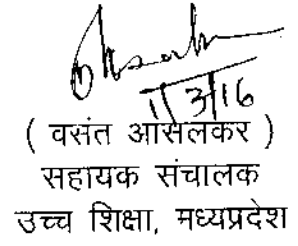 11/3/16
( वसंत आसलकर )
सहायक संचालक
उच्च शिक्षा, मध्यप्रदेश